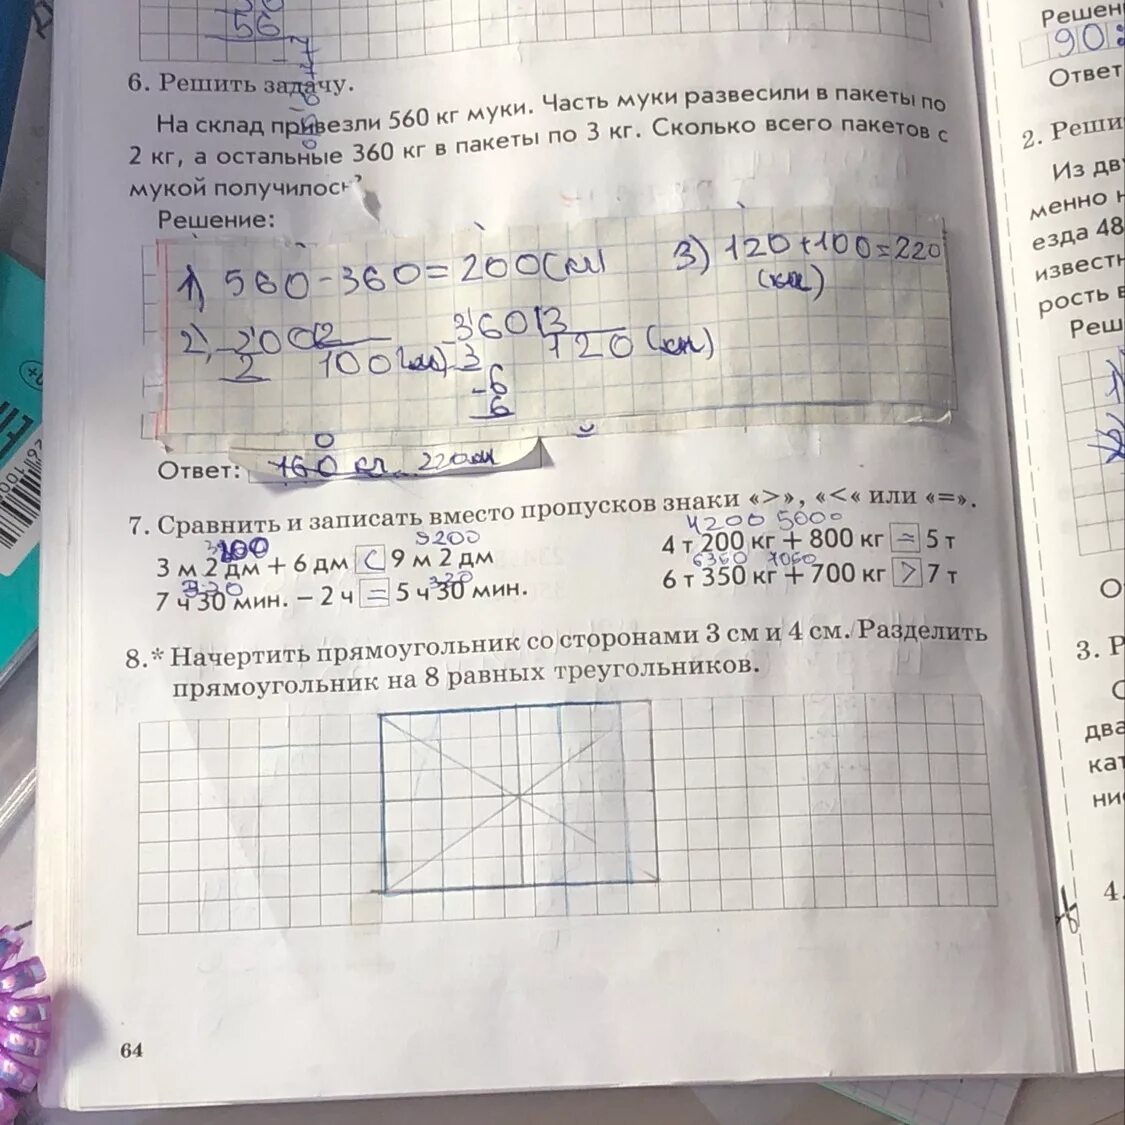 56
6. Решить задачу.
На склад привезли 560 кг муки. Часть муки развесили в пакеты по
2 кг, а остальные 360 кг в пакеты по 3 кг. Сколько всего пакетов с
мукой получилось?
Решение:
1) 560 - 360 = 200 (
3) 120 + 100 = 220
2) 200 2
100
360 3
120
2
- 3
- 6
6
0
Ответ: 160 220
7. Сравнить и записать вместо пропусков знаки «>», «<« или «=».
9200
4200 5000
3 м 2 дм + 6 дм < 9 м 2 дм
4 т 200 кг + 800 кг = 5 т
6350 7050
7 ч 30 мин. – 2 ч = 5 ч 30 мин.
6 т 350 кг + 700 кг > 7 т
8.* Начертить прямоугольник со сторонами 3 см и 4 см. Разделить
прямоугольник на 8 равных треугольников.
64
Решен
90:
Ответ
2. Реши
Из дв
менно н
езда 48
известн
рость в
Реш
1)
2)
О
3. Р
С
два
кат
ни
4.